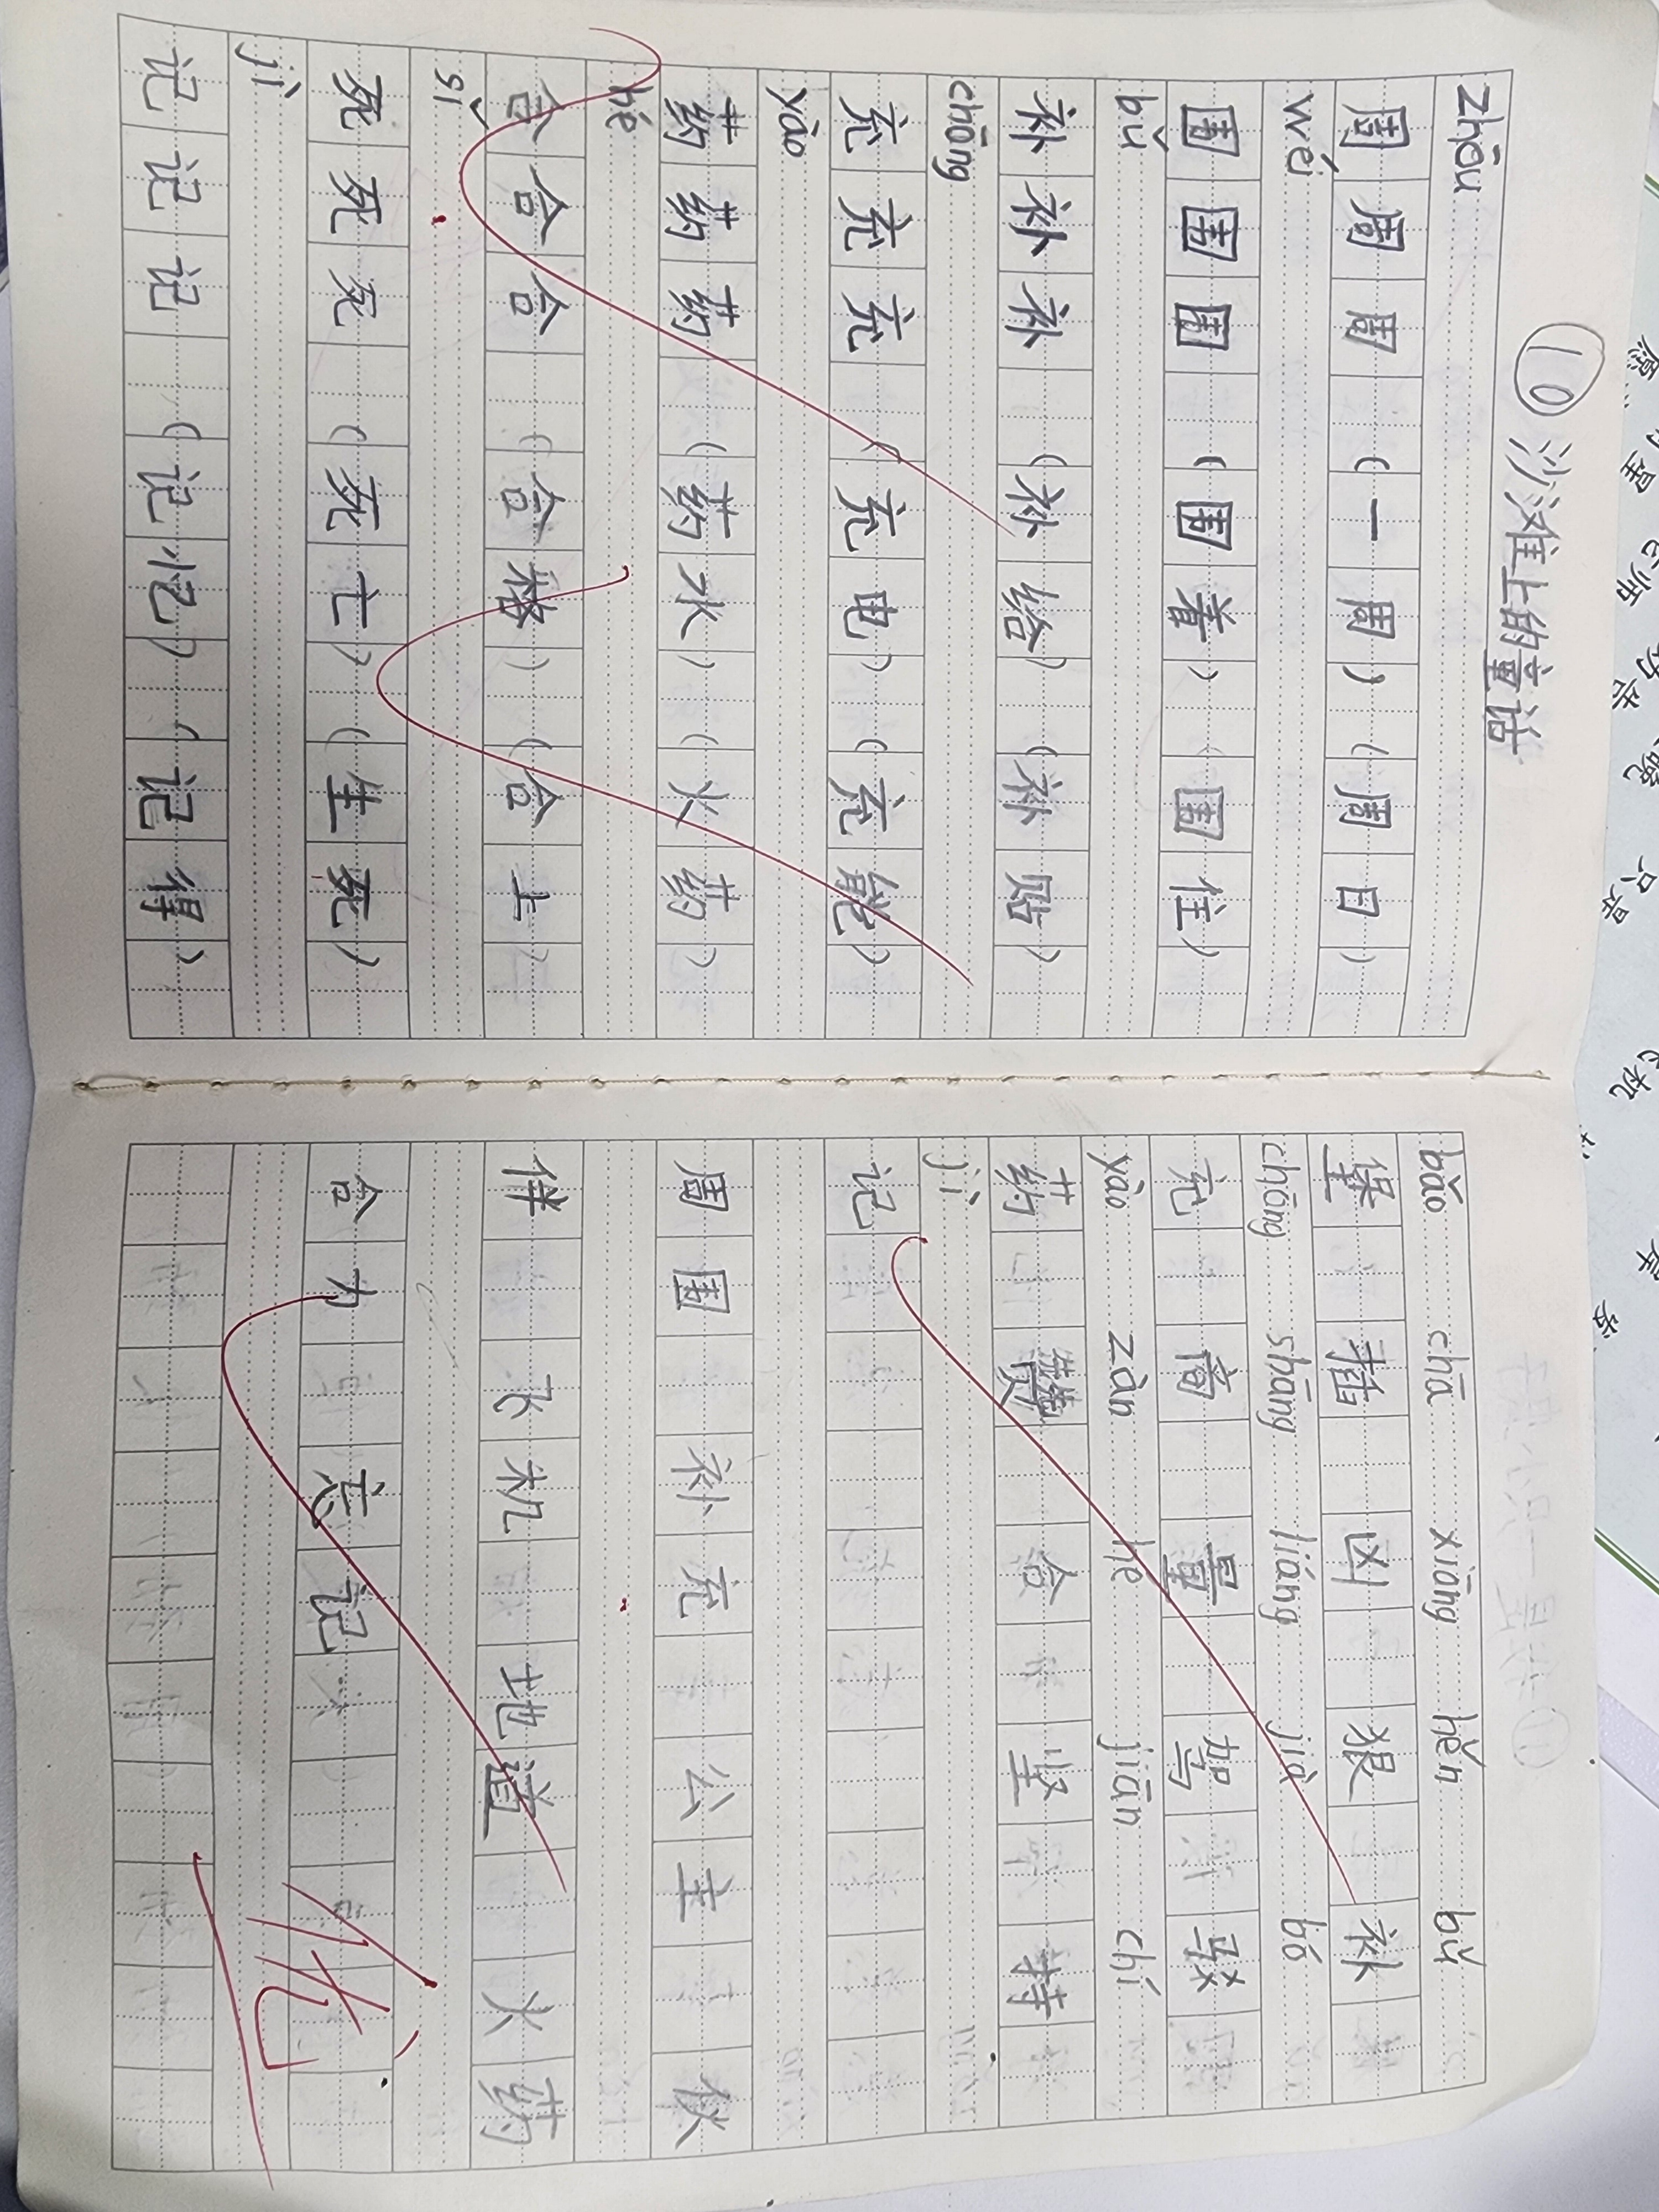 ⑩沙滩上的童话
zhōu
周周周(一周)(周日)
wéi
围围围(围着)(围住)
bǔ
补补补(补给)(补贴)
chōng
充充充(充电)(充能)
yào
药药药(药水)(火药)
hé
合合合(合格)(合上)
sǐ
死死死(死亡)(生死)
jì
记记记(记忆)(记得)
bǎo chā xiōng hěn bǔ
堡插凶狠补
chōng shāng liáng jià bó
充商量驾驳
yào zàn hé jiān chí
药赞合坚持
jì
记
周围 补充 公主 伙
伴 飞机 地道 火药
合力 忘记
优